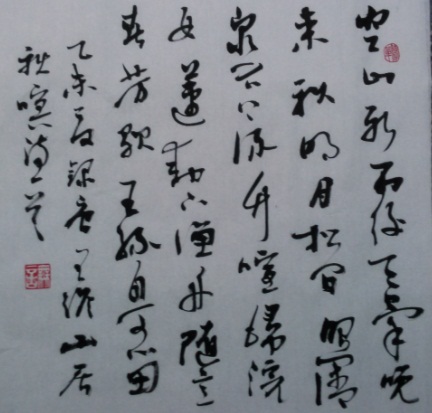 空山新雨後天氣晚
來秋明月松間照清
泉石上流竹喧歸浣
女蓮動下漁舟隨意
春芳歇王孫自可留
乙未夏錄唐王維山居
秋暝詩